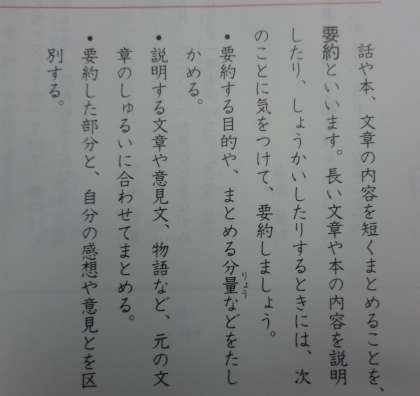 話や本、文章の内容を短くまとめることを、
要約といいます。長い文章や本の内容を説明
したり、しょうかいしたりするときには、次
のことに気をつけて、要約しましょう。
●要約する目的や、まとめる分量などをたし
りょう
かめる。
●説明する文章や意見文、物語など、元の文
章のしゅるいに合わせてまとめる。
●要約した部分と、自分の感想や意見とを区
別する。